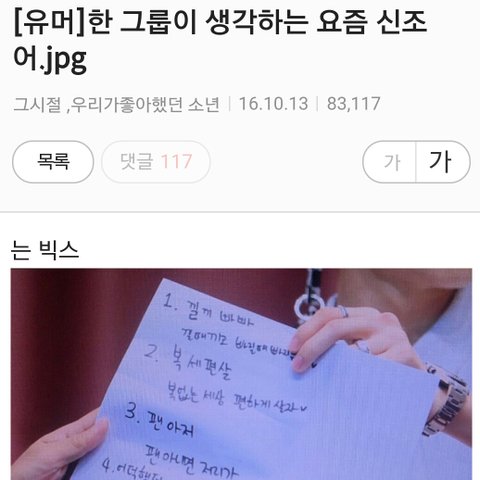 [유머]한 그룹이 생각하는 요즘 신조
어.jpg
그시절 ,우리가좋아했던 소년 16.10.13 83,117
목록 댓글 117 가 가
는 빅스
1. 낄끼 빠빠
낄때끼고 빠질때
2. 복세편살
복없는 세상 편하게 살자
3. 팬아저
팬아니면 저리가